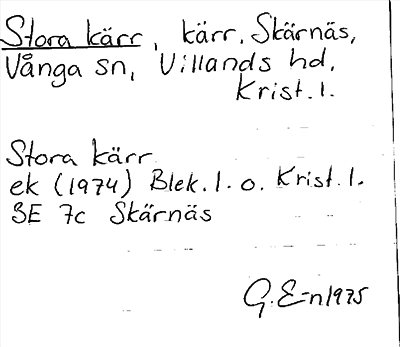 Stora kärr, kärr, Skärnäs,
Vånga sn, Villands hd,
Krist. l.
Stora kärr
ek (1974) Blek. l. o. Krist. l.
3E 7c Skärnäs
G. E=n 1975